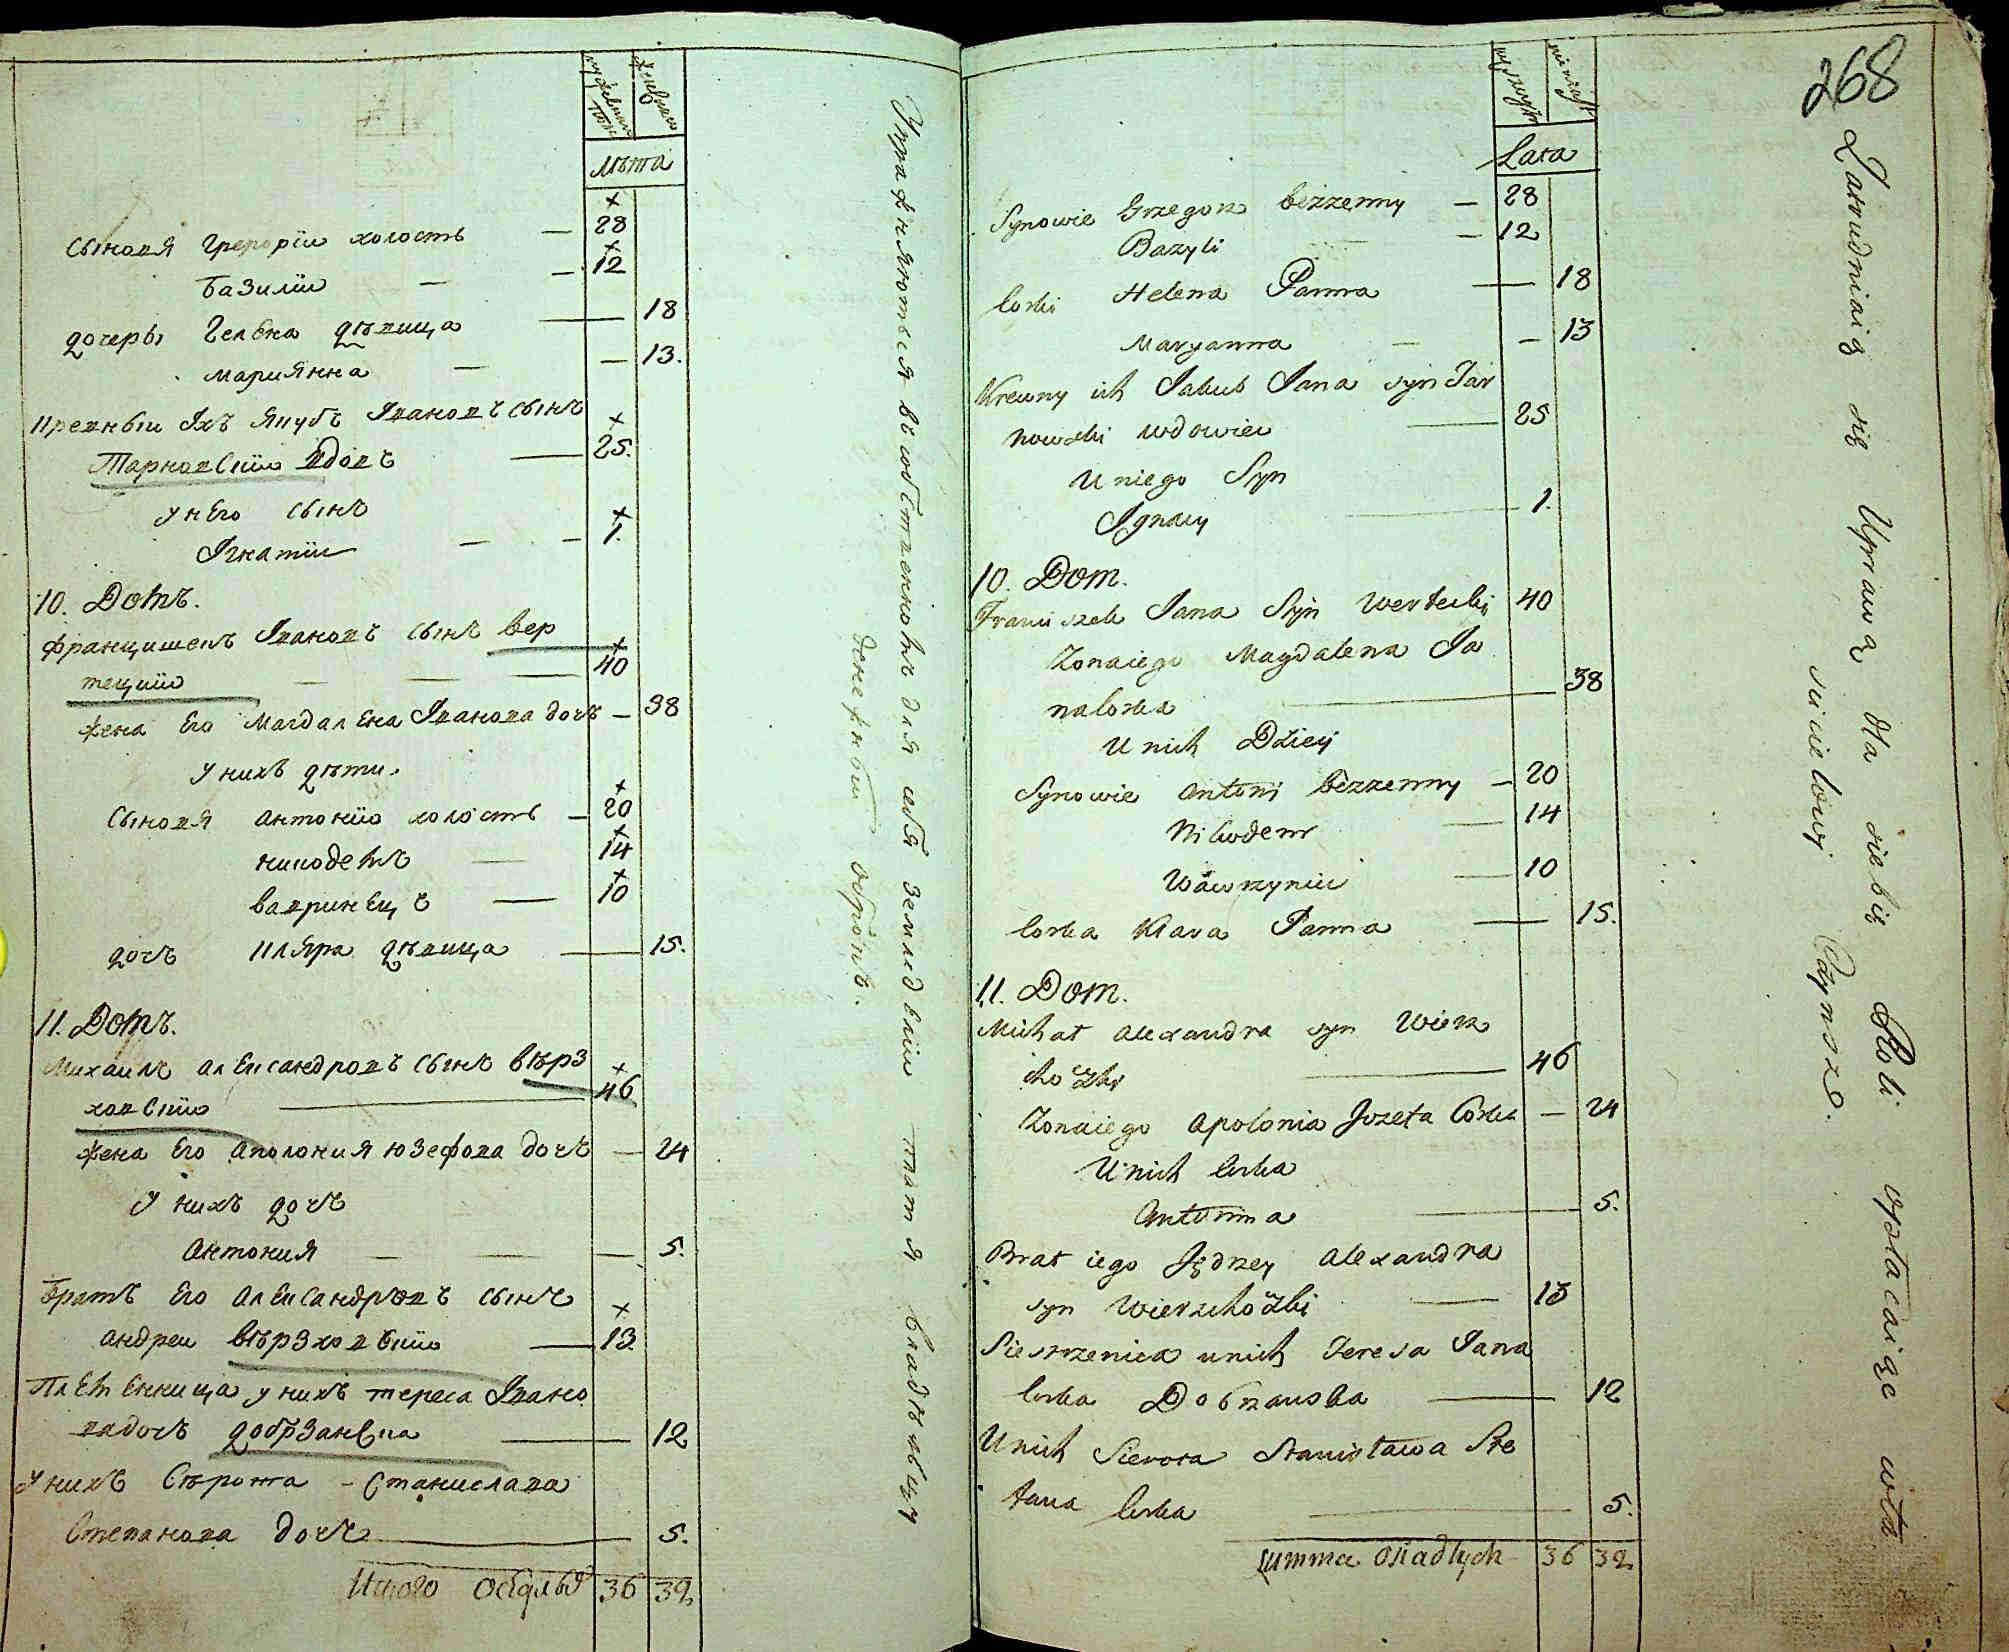 Лѣта
Сыновя Грегорiи холостъ — 28
Базилiи — 12
дочеры Гелѣна дѣвица — 18
Мариянна — 13.
Кревныи Ихъ Якубъ Ивановъ сынъ
Тарновскiи вдовъ — 25.
у него сынъ
Iгнатiи — 1.
10. Домъ.
Францишекъ Ивановъ сынъ Вер
тецкiи — 40
жена Его Магдалена Iванова дочъ — 38
у нихъ дѣти
Сыновя Антонiи холостъ — 20
Никодемъ — 14
Вавринецъ — 10
дочъ Кляра дѣвица — 15.
11. Домъ.
Михаилъ Александровъ сынъ Вѣрз
ховскiи — 46
жена Его Аполония Юзефова дочъ — 24
у нихъ дочъ
Антония — 5.
Братъ Его Александровъ сынъ
Андреи Вѣрзховскiи — 13
Племенница у нихъ Тереса Ивано
ва дочъ Добрзанска — 12
у нихъ Сѣрота - Станислава
Степанова дочъ — 5.
Итого 36 39
Упражняются въ собственномъ для себя земледѣлiи платя владѣльцу
денежный оброкъ.
268
Lata
Synowie Grzegorz bezzenny — 28
Bazyli — 12
Corki Helena Panna — 18
Maryanna — 13
Krewny ich Jakub Jana syn Tar
nowski wdowiec — 25
U niego Syn
Ignacy — 1.
10. Dom.
Franciszek Jana Syn Wertecki 40
Zona iego Magdalena Ja
na Corka — 38
U nich Dzieci
Synowie Antoni bezzenny — 20
Nikodem — 14
Wawrzyniec — 10
Corka Klara Panna — 15.
11. Dom.
Michał Alexandra syn Wierz
— 46
Zona iego Apolonia Jozefa Corka — 24
U nich Corka
Antonina — 5.
Brat iego Jędrzey Alexandra
syn — 13
Siestrzenica u nich Teresa Jana
Corka Dobrzanska — 12
U nich Sierota Stanisława Ste
fana Corka — 5.
Summa Osiadłych 36 39
Zatrudniaią się Uprawą dla siebie Roli opłacaiąc
Czynsz.